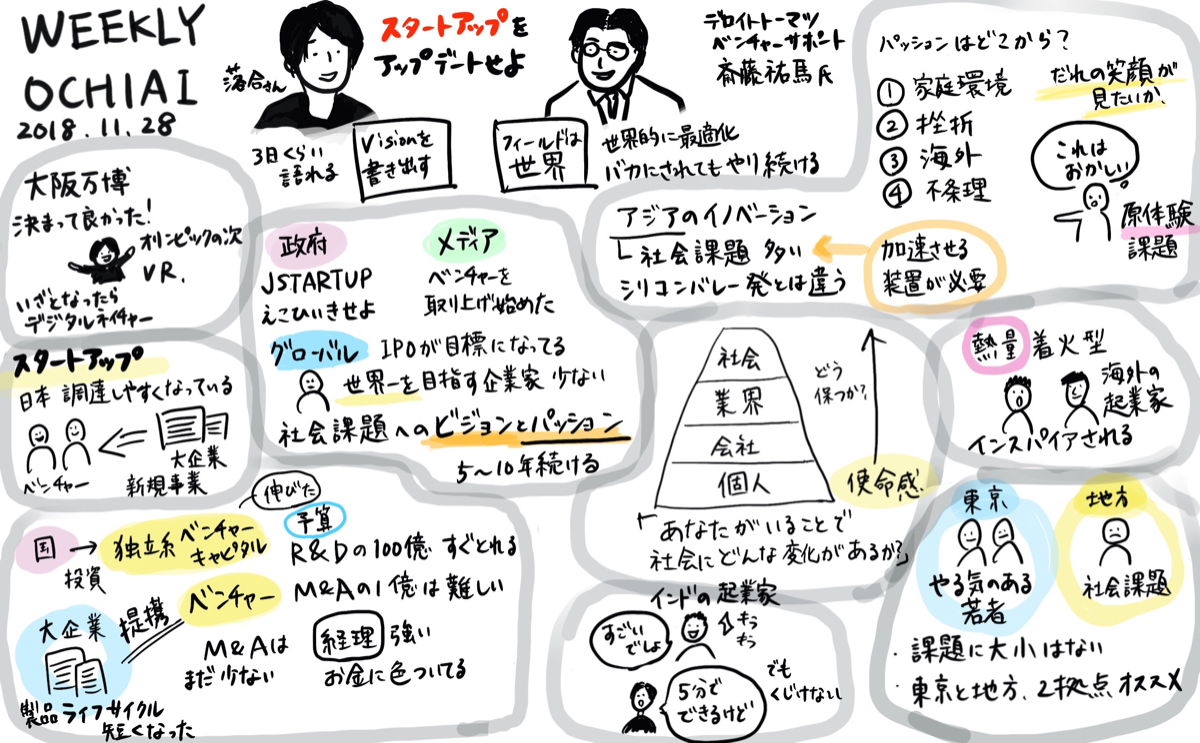 WEEKLY
OCHIAI
2018.11.28
落合さん
スタートアップを
アップデートせよ
デロイトトーマツ
ベンチャーサポート
斎藤祐馬氏
3日くらい
語れる
Visionを
書き出す
フィールドは
世界
世界的に最適化
バカにされてもやり続ける
パッションはどこから?
① 家庭環境
② 挫折
③ 海外
④ 不条理
だれの笑顔が
見たいか
これは
おかしい
原体験
課題
大阪万博
決まって良かった!
オリンピックの次
VR.
いざとなったら
デジタルネイチャー
政府
JSTARTUP
えこひいきせよ
メディア
ベンチャーを
取り上げ始めた
グローバル
IPOが目標になってる
世界一を目指す企業家 少ない
社会課題へのビジョンとパッション
5〜10年続ける
アジアのイノベーション
社会課題 多い
シリコンバレー発とは違う
加速させる
装置が必要
スタートアップ
日本 調達しやすくなっている
ベンチャー
大企業
新規事業
社会
業界
会社
個人
どう
保つか?
使命感
「あなたがいることで
社会にどんな変化があるか?」
熱量 着火型
海外の
起業家
インスパイアされる
国
→
投資
独立系 ベンチャー
キャピタル
伸びた
予算
R&Dの100億 すぐとれる
M&Aの1億は難しい
経理 強い
お金に色ついてる
大企業
提携
ベンチャー
M&Aは
まだ少ない
製品ライフサイクル
短くなった
インドの起業家
すごい
でしょ
5分で
できるけど
でも
くじけない
東京
やる気のある
若者
地方
社会課題
・課題に大小はない
・東京と地方、2拠点オススメ